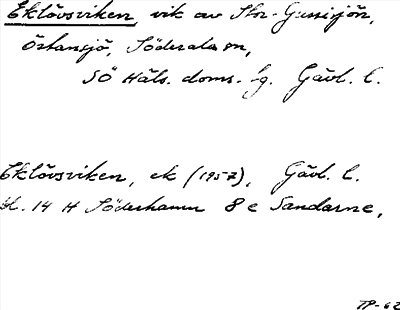 Eklövsviken, vik av Stor-Gussisjön,
Östansjö, Söderala sn,
SÖ Häls. doms. fg. Gävl. l.
Eklövsviken, ek (1957), Gävl. l.
bl. 14 H Söderhamn 8 e Sandarne,
TP-62